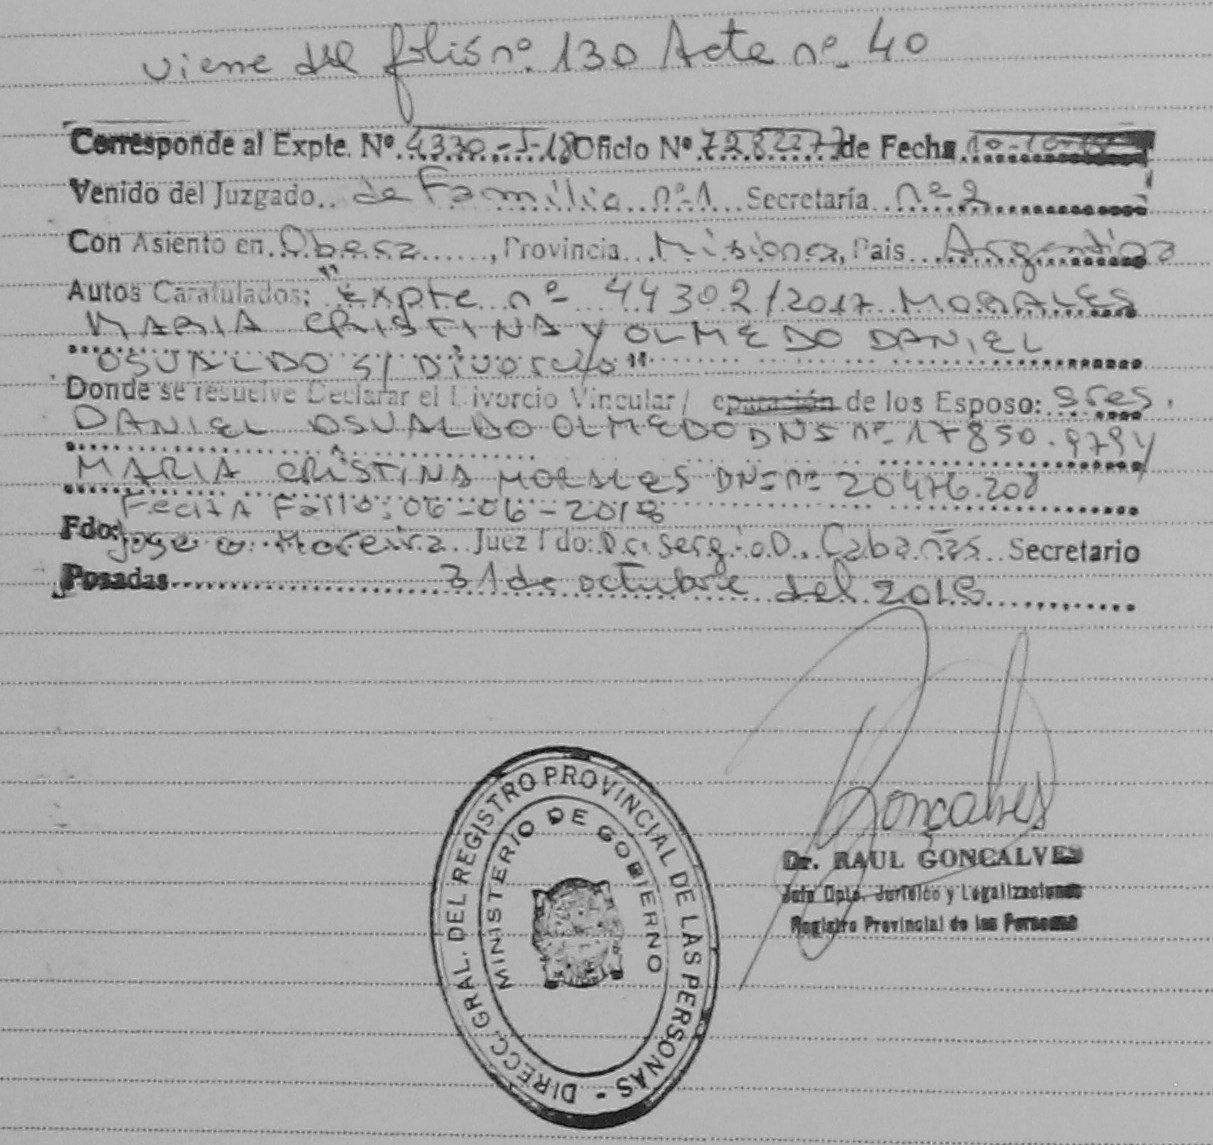 viene del folio nº 130 Acta nº 40
Corresponde al Expte. Nº 4330-J-18 Oficio Nº 728227 de Fecha 10-10-18
Venido del Juzgado de Familia nº 1 Secretaría nº 2
Con Asiento en Oberá, Provincia Misiones, Pais Argentina
Autos Caratulados: "Expte nº 44302/2017 MORALES
MARIA CRISTINA Y OLMEDO DANIEL
OSVALDO S/ Divorcio"
Donde se resuelve Declarar el Divorcio Vincular/ eparación de los Esposo: Sres.
DANIEL OSVALDO OLMEDO DNI nº 17850.979 y
MARIA CRISTINA MORALES DNI nº 20476.208
FECHA Fallo: 06-06-2018
Fdo: Jose G. Moreira Juez Fdo: Dr. Sergio D. Cabañas Secretario
Posadas 31 de octubre del 2018
Gonçalves
Dr. RAUL GONCALVES
Jefe Dpto. Jurídico y Legalizaciones
Registro Provincial de las Personas
DIRECC. GRAL. DEL REGISTRO PROVINCIAL DE LAS PERSONAS -
MINISTERIO DE GOBIERNO